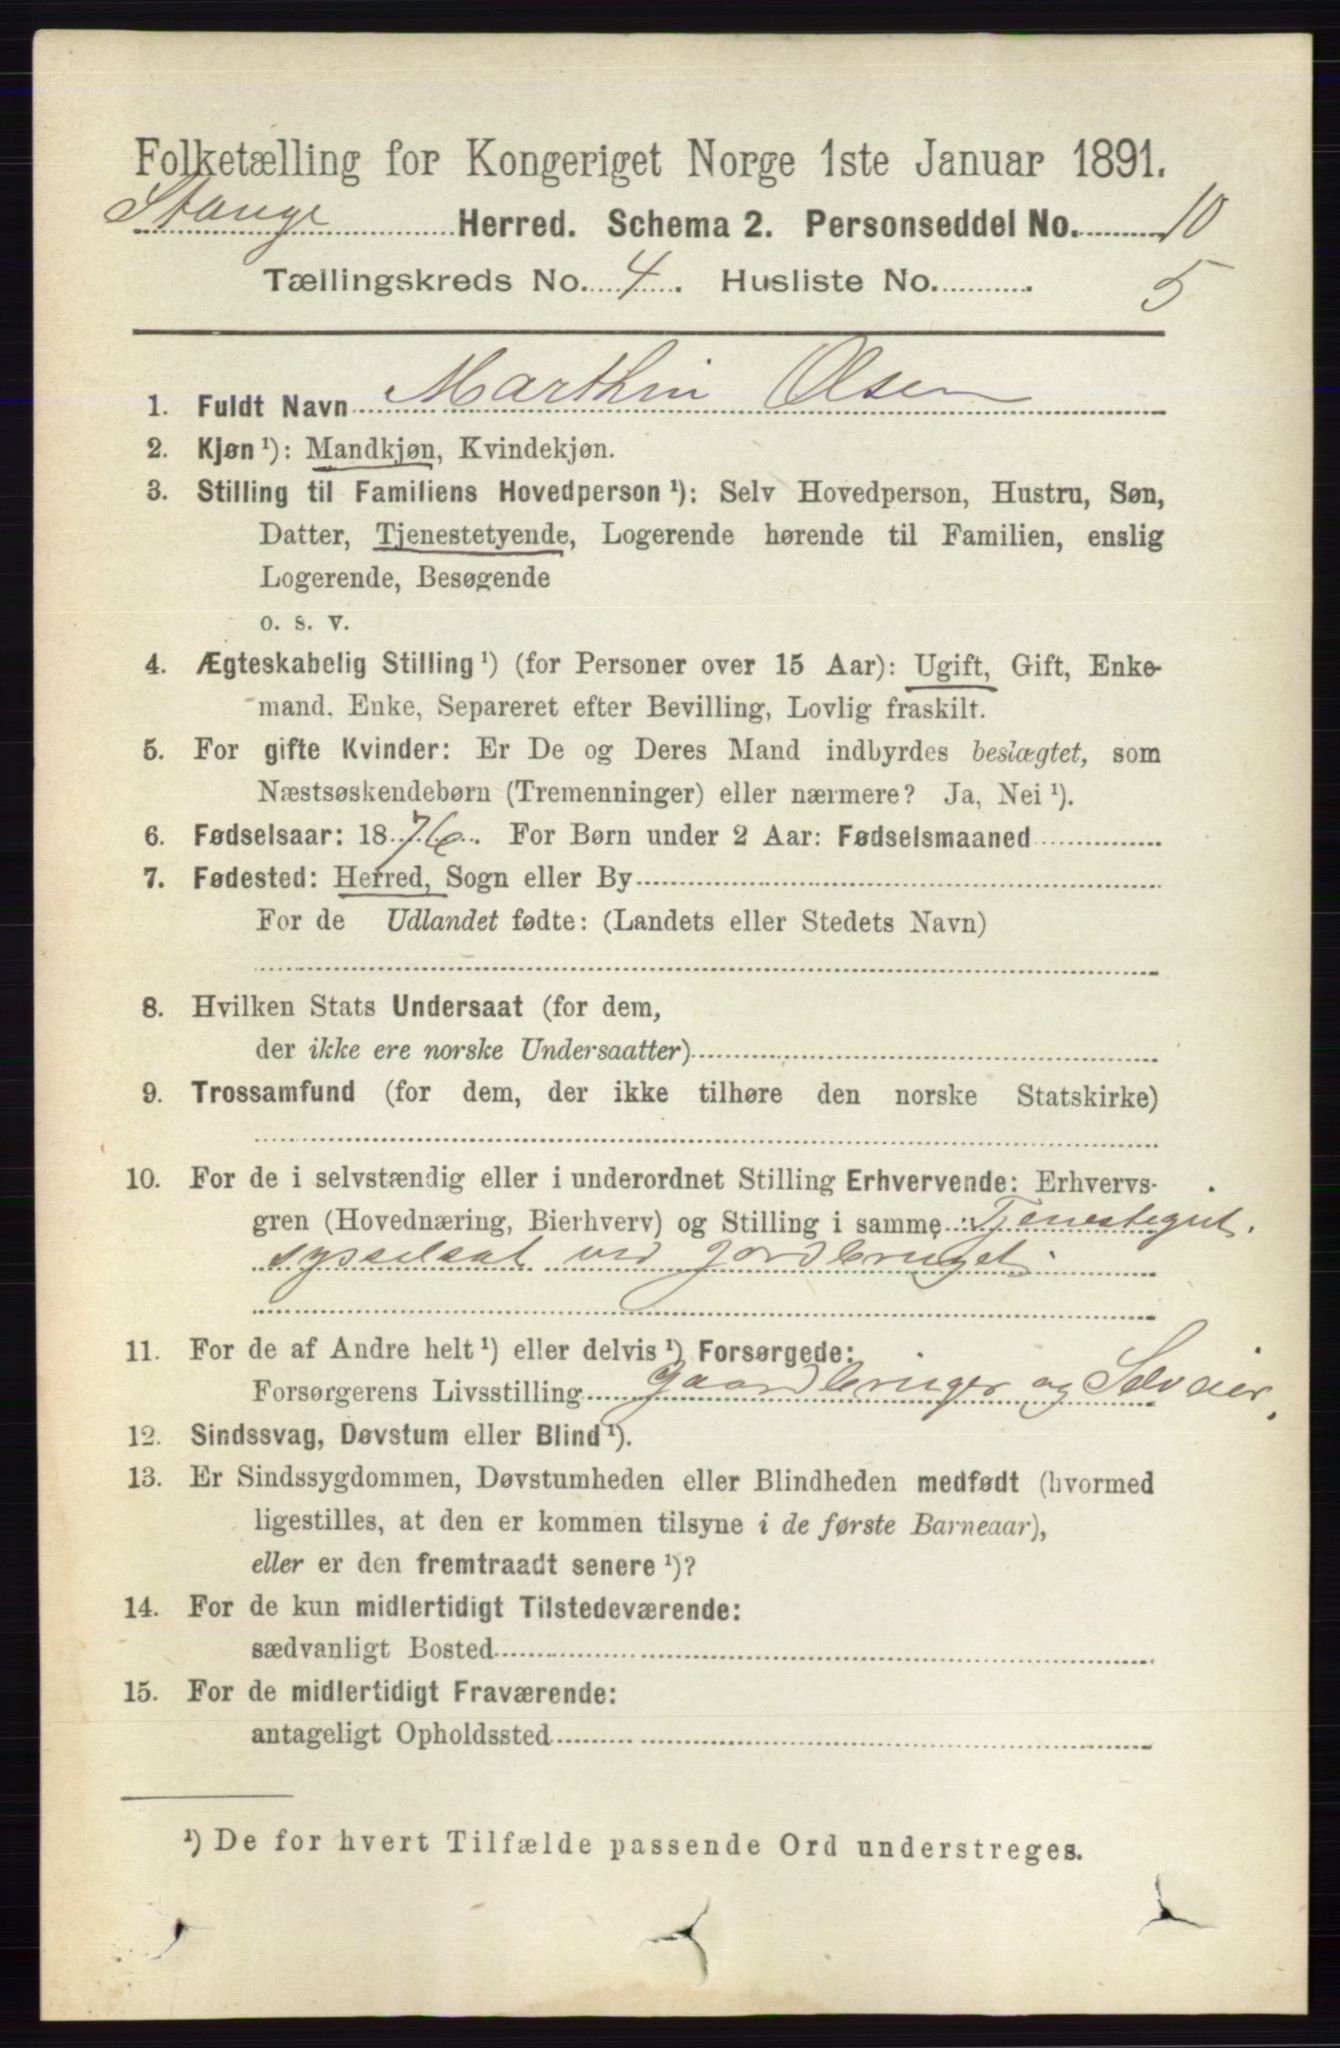 Folketælling for Kongeriget Norge 1ste Januar 1891.
Stange Herred. Schema 2. Personseddel No. 10
Tællingskreds No. 4. Husliste No. 5
1. Fuldt Navn Marthin Olsen
2. Kjøn ¹): Mandkjøn, Kvindekjøn.
3. Stilling til Familiens Hovedperson ¹): Selv Hovedperson, Hustru, Søn,
Datter, Tjenestetyende, Logerende hørende til Familien, enslig
Logerende, Besøgende
o. s. v.
4. Ægteskabelig Stilling ¹) (for Personer over 15 Aar): Ugift, Gift, Enke-
mand, Enke, Separeret efter Bevilling, Lovlig fraskilt.
5. For gifte Kvinder: Er De og Deres Mand indbyrdes beslægtet, som
Næstsøskendebørn (Tremenninger) eller nærmere? Ja, Nei ¹).
6. Fødselsaar: 1876. For Børn under 2 Aar: Fødselsmaaned
7. Fødested: Herred, Sogn eller By
For de Udlandet fødte: (Landets eller Stedets Navn)
8. Hvilken Stats Undersaat (for dem,
der ikke ere norske Undersaatter)
9. Trossamfund (for dem, der ikke tilhøre den norske Statskirke)
10. For de i selvstændig eller i underordnet Stilling Erhvervende: Erhvervs-
gren (Hovednæring, Bierhverv) og Stilling i samme: Tjenestegut.
sysselsat ved Jordbruget.
11. For de af Andre helt ¹) eller delvis ¹) Forsørgede:
Forsørgerens Livsstilling Gaardbruger og Selveier.
12. Sindssvag, Døvstum eller Blind ¹).
13. Er Sindssygdommen, Døvstumheden eller Blindheden medfødt (hvormed
ligestilles, at den er kommen tilsyne i de første Barneaar),
eller er den fremtraadt senere ¹)?
14. For de kun midlertidigt Tilstedeværende:
sædvanligt Bosted
15. For de midlertidigt Fraværende:
antageligt Opholdssted
¹) De for hvert Tilfælde passende Ord understreges.